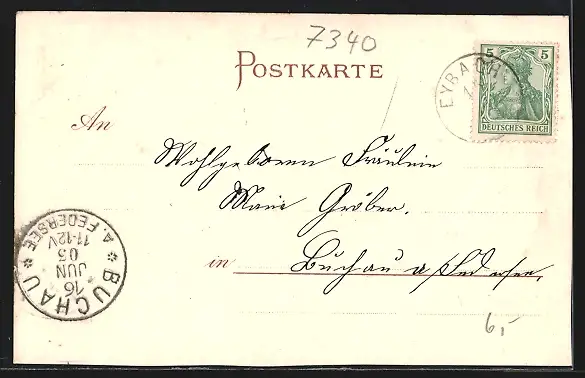 7340
POSTKARTE
5 5
DEUTSCHES REICH
EYBACH
An
Wohlgeboren Fräulein
Marie Gröber.
in Buchau a/Federsee.
BUCHAU
16
JUN
05
11-12V
* A. FEDERSEE *
6,-